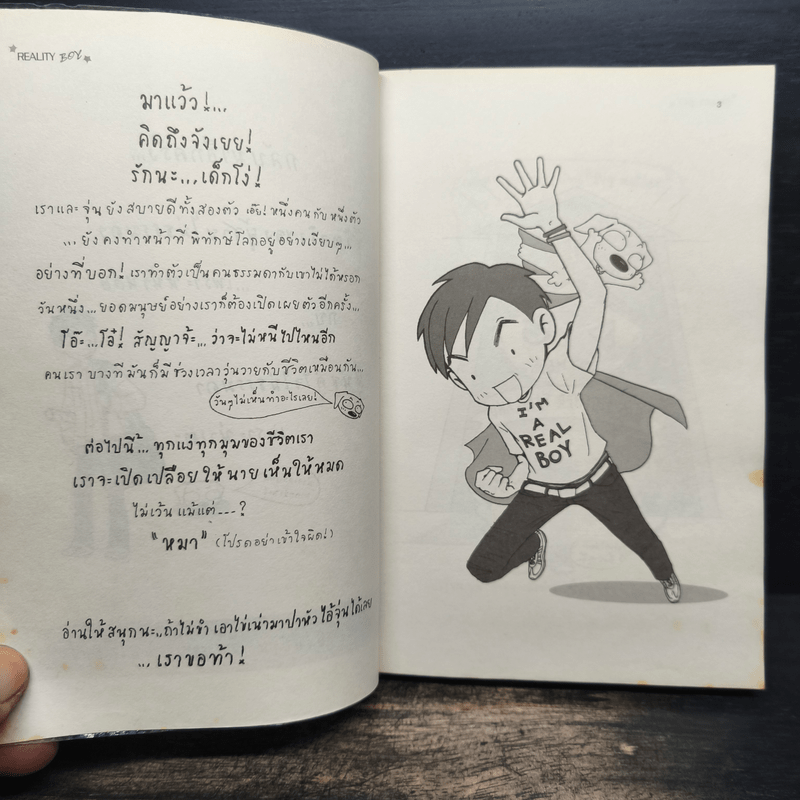 REALITY BOY
มาแว้ว!...
คิดถึงจังเยย!
รักนะ...เด็กโง่!
เราและ จุ่น ยังสบายดีทั้งสองตัว เอ๊ย! หนึ่งคน กับ หนึ่งตัว
...ยังคงทำหน้าที่ พิทักษ์โลกอยู่อย่างเงียบๆ...
อย่างที่บอก! เราทำตัวเป็นคนธรรมดากับเขาไม่ได้หรอก
วันหนึ่ง...ยอดมนุษย์อย่างเราก็ต้องเปิดเผยตัวอีกครั้ง...
โอ๊ะ...โอ๋! สัญญาจ้ะ... ว่าจะไม่หนีไปไหนอีก
คนเรา บางทีมันก็มีช่วงเวลาวุ่นวายกับชีวิตเหมือนกัน...
วันๆไม่เห็นทำอะไรเลย!
ต่อไปนี้... ทุกแง่ทุกมุมของชีวิตเรา
เราจะเปิดเปลือย ให้นายเห็นให้หมด
ไม่เว้น แม้แต่---?
"หมา" (โปรดอย่าเข้าใจผิด!)
อ่านให้สนุกนะ..ถ้าไม่ขำ เอาไข่เน่ามาปาหัวไอ้จุ่นได้เลย
... เราขอท้า!
3
I'M
A
REAL
BOY